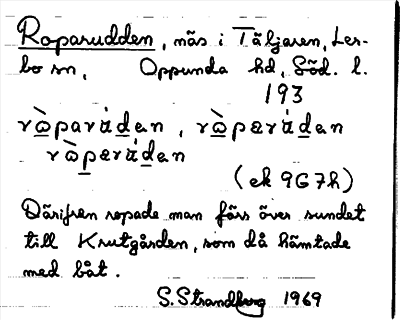 Roparudden, näs i Täljaren, Ler-
bo sn, Oppunda hd, Söd. l.
193
rò̱parȧḏen, rò̱pɐrȧḏen
rò̱pɐrȧḏen
(ek 9G7h)
Därifrån ropade man förr över sundet
till Krutgården, som då hämtade
med båt.
S. Strandberg 1969